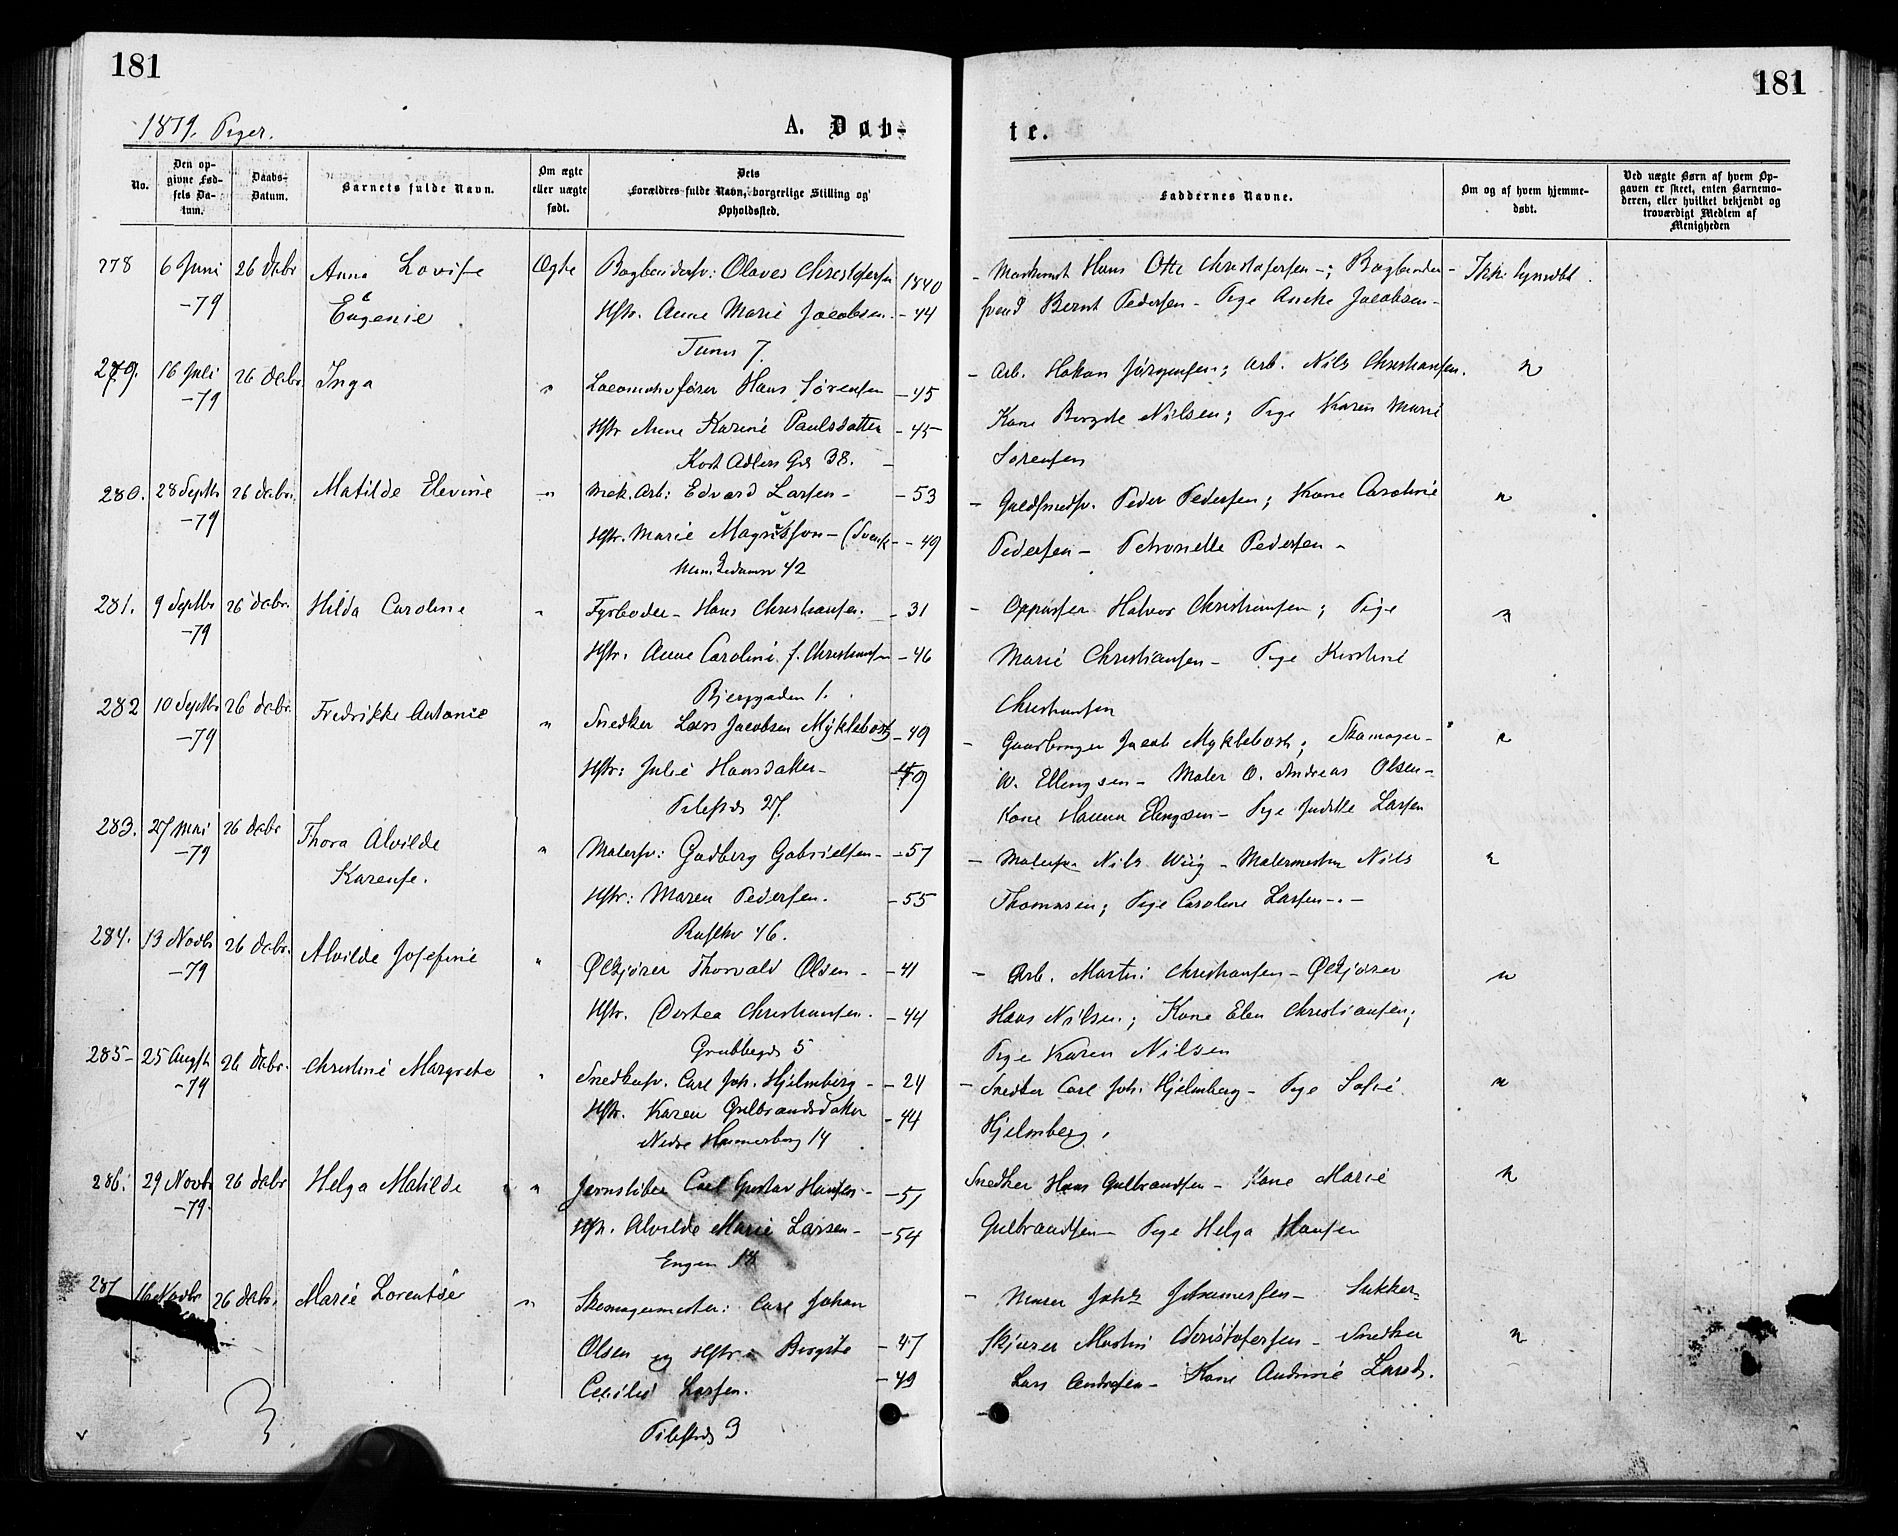 181
181
1879. Piger.
A. Døb-
te.
No.
Den op-
givne Fød-
sels Da-
tum.
Daabs-
Datum.
Barnets fulde Navn.
Om ægte
eller uægte
født.
Dets
Forældres fulde Navn, borgerlige Stilling og
Opholdssted.
Faddernes Navne.
Om og af hvem hjemme-
døbt.
Ved uægte Børn af hvem Op-
gaven er skeet, enten Barnemo-
deren, eller hvilket bekjendt og
troværdigt Medlem af
Menigheden
278 6 Juni 26 Debr Anna Lovise Ægte Olaves Christofersen 1840
-79 Eugenie Hstr. Anne Marie Jacobsen - 44
Hans Otto Christofersen -;
Bernt Pedersen - Pige Jacobsen -
279. 16 Juli 26 Debr Inga " Locomotivfører Hans Sørensen - 45
-79 Hstr Anne Karine Paulsdatter - 45
Kort Adlers Gd 38.
- Arb. Hakon Jørgensen; Arb. Nils Christiansen. "
Kone Nilsen; Pige Karen Marie
Sørensen
280. 28 Septbr 26 Debr. Matilde Elevine " Mek. Arb: Edvard Larsen - - 53
-79 Hstr. Marie Magnusson - (Svensk - - 49
42
- Guldsmedsv. Peder Pedersen; Kone Caroline "
Pedersen - Petronelle Pedersen -
281. 9 Septbr 26 Debr. Hilda Caroline " Fyrbøder - Hans Christiansen. - 31
-79 Hstr. Anne Caroline f. Christiansen - 46
Bjerggaden 1.
- Oppasser Halvor Christiansen; Pige "
Marie Christiansen - Pige Kirstine
Christiansen
282 10 Septbr 26 Debr. Fredrikke Antonie " Snedker Lars Jacobsen Myklebost - 49
-79 Hstr: Julie Hansdatter - 49
Pilestrd 27.
- Gaardbruger Jacob Myklebost; Skomager - "
W. Ellingsen - Maler O. Andreas Olsen -
Kone Hanna Elingsen - Pige Judithe Larsen
283. 27 Mai 26 Debr Thora Alvilde " Malersv: Gudberg Gabrielsen - - 57
-79 Karense. Hstr: Maren Pedersen. - 55
46.
- Malersv Nils Wiig - Malermester Nils "
Thomasen; Pige Caroline Larsen -
284. 13 Novbr 26 Debr. Alvilde Josefine " Ølkjører Thorvald Olsen - - 41
-79 Hstr. Dortea Christiansen. - 44
Grubbegd 5
- Arb. Martin Christiansen - Ølkjører "
Hans Nilsen; Kone Elen Christiansen;
Pige Karen Nilsen
285 - 25 Augst 26 Debr. Christine Margrete " Snedkersv. Carl Joh. Hjelmberg - - 24
-79 Hstr. Karen Gulbrandsdatter - 44
Nedre Hammersborg 14
- Snedker Carl Joh. Hjelmberg - Pige Sofie "
Hjelmberg.
286. 29 Novbr 26 Debr Helga Matilde " Jernstøber Carl Gustav Hansen - - 51
-79. Hstr. Alvilde Marie Larsen - - 54
Engen
Snedker Hans Gulbrandsen - Kone Marie "
Gulbrandsen - Pige Helga Hansen
287 16 Novbr 26 Debr. Marie Lorentse " Skomagermester: Carl Johan
Olsen og Hstr: Birgitte - 47
Cecilie Larsen. - 49
Pilestrd 9
- Murer Sukker-
skjærer Martin Christofersen - Snedker "
Lars Andersen - Kone
3